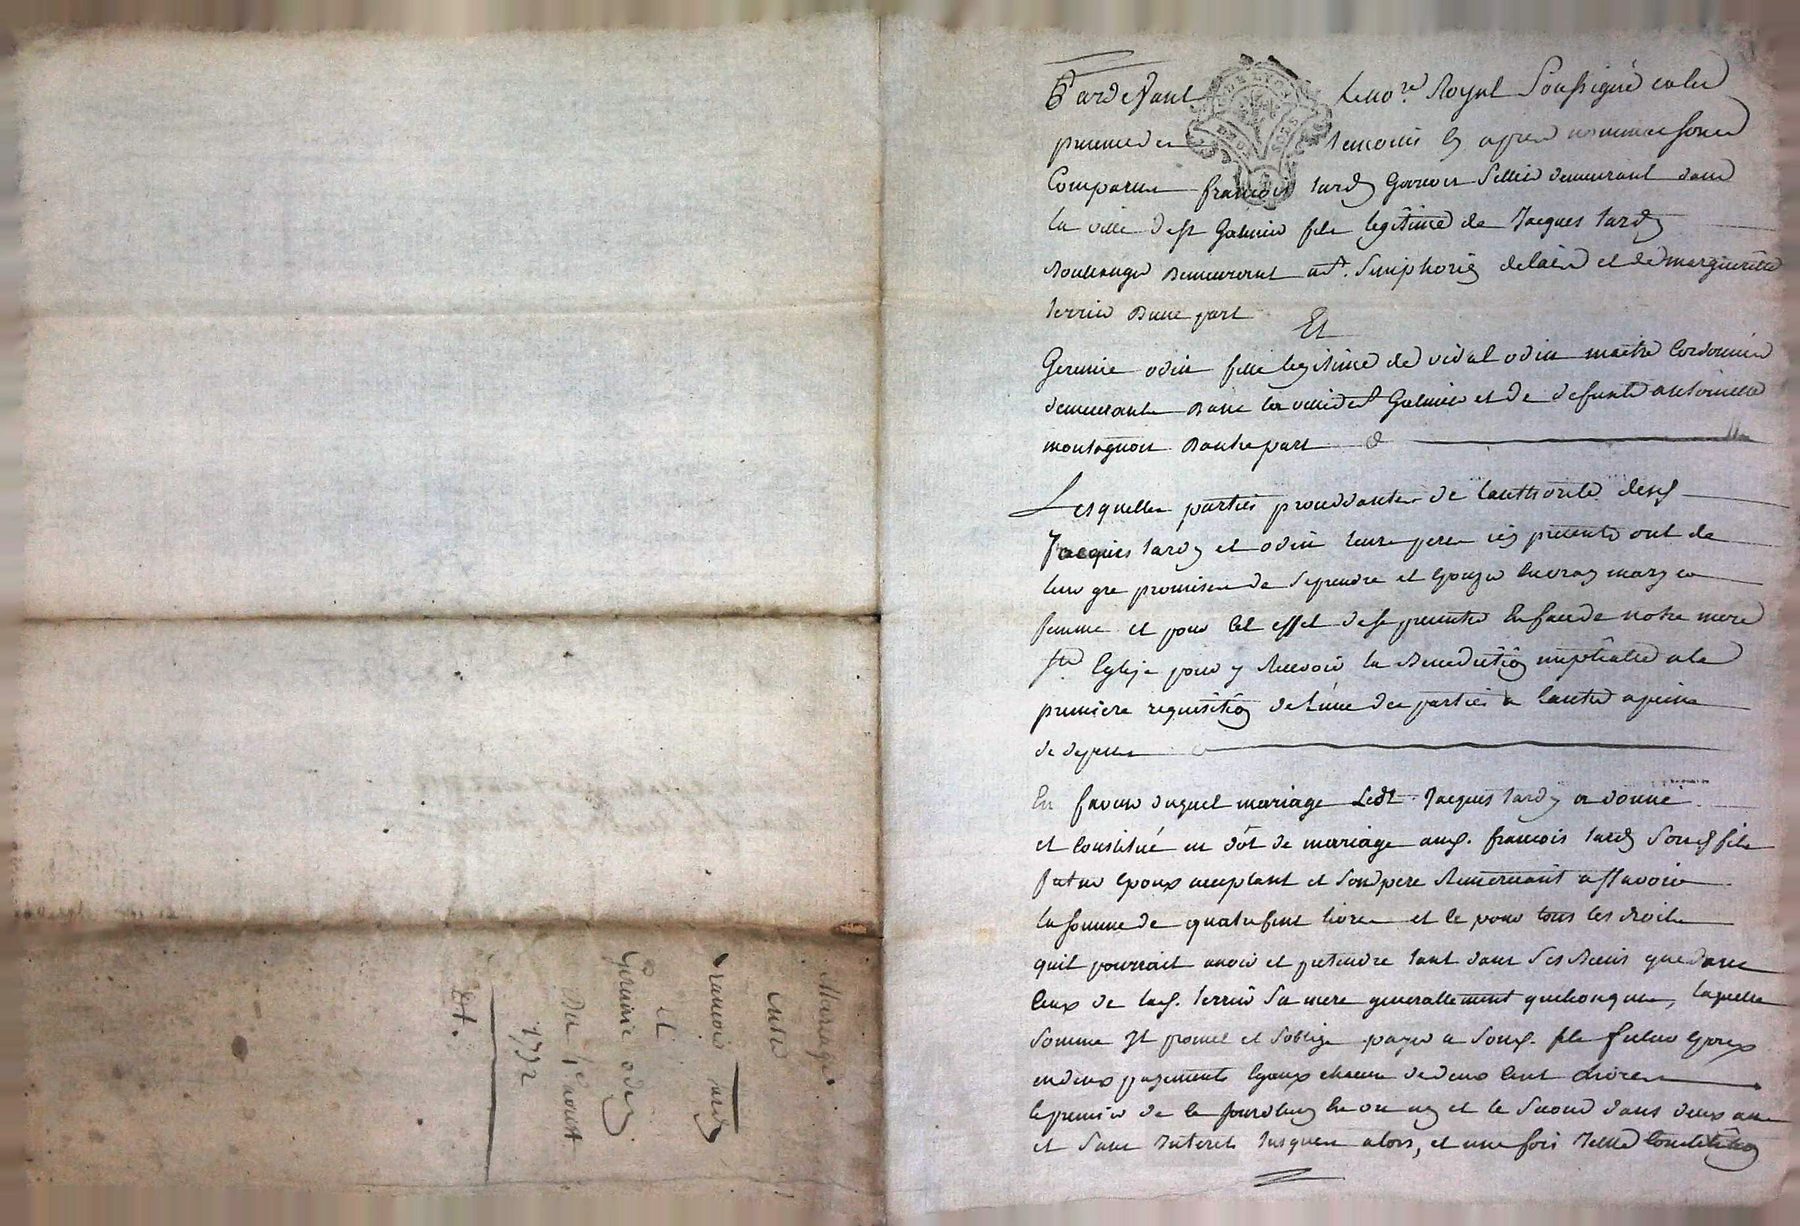 Pardevant le no.re Royal soussigné en la
presence des temoins cy apres nommés sont
Comparus françois tardy Garçon sellier demeurant dans
la ville de st Galmier fils legitime de Jacques tardy
Boulanger demeurant a st. simphorien delaÿe et de marguerite
terrier d'une part
Et
Geremie odin fille legitime de vidal odin maitre Cordonnier
demeurante dans la ville de st Galmier et de defunte antoinette
montagnon d'autre part
Lesquelles parties procedantes de lauthorité desd
Jacques tardy et odin leurs peres icy presents ont de
leur gré promises de se prendre et epouzer en vray mary et
femme et pour cet effet de se presenter en face de notre mere
ste Eglize pour y Recevoir la Benediction nuptialle a la
premiere requisition de l'une des parties a lautre a peine
de depens
En faveur duquel mariage Ledt. Jacques tardy a donné
et Constitué en dôt de mariage aud. françois tardy sond fils
futur Epoux acceptant et sond pere Remerciant assavoir
la somme de quatre sent livres et ce pour tous les droits
quil pourrait avoir et pretendre tant dans ses Biens que dans
Ceux de lad. terrier sa mere generallement quelconques, laquelle
somme Jl promet et soblige payer a sond. fils futur Epoux
en deux payements egaux chacun de deux Cent Livres
le premier de ce jourdhuy en un an et le second dans deux ans
et sans Interet Jusques alors, et une fois Jcelle Constitution
Mariage
entre
francois tardy
et
Geremie odin
Du 1er aoust
1792